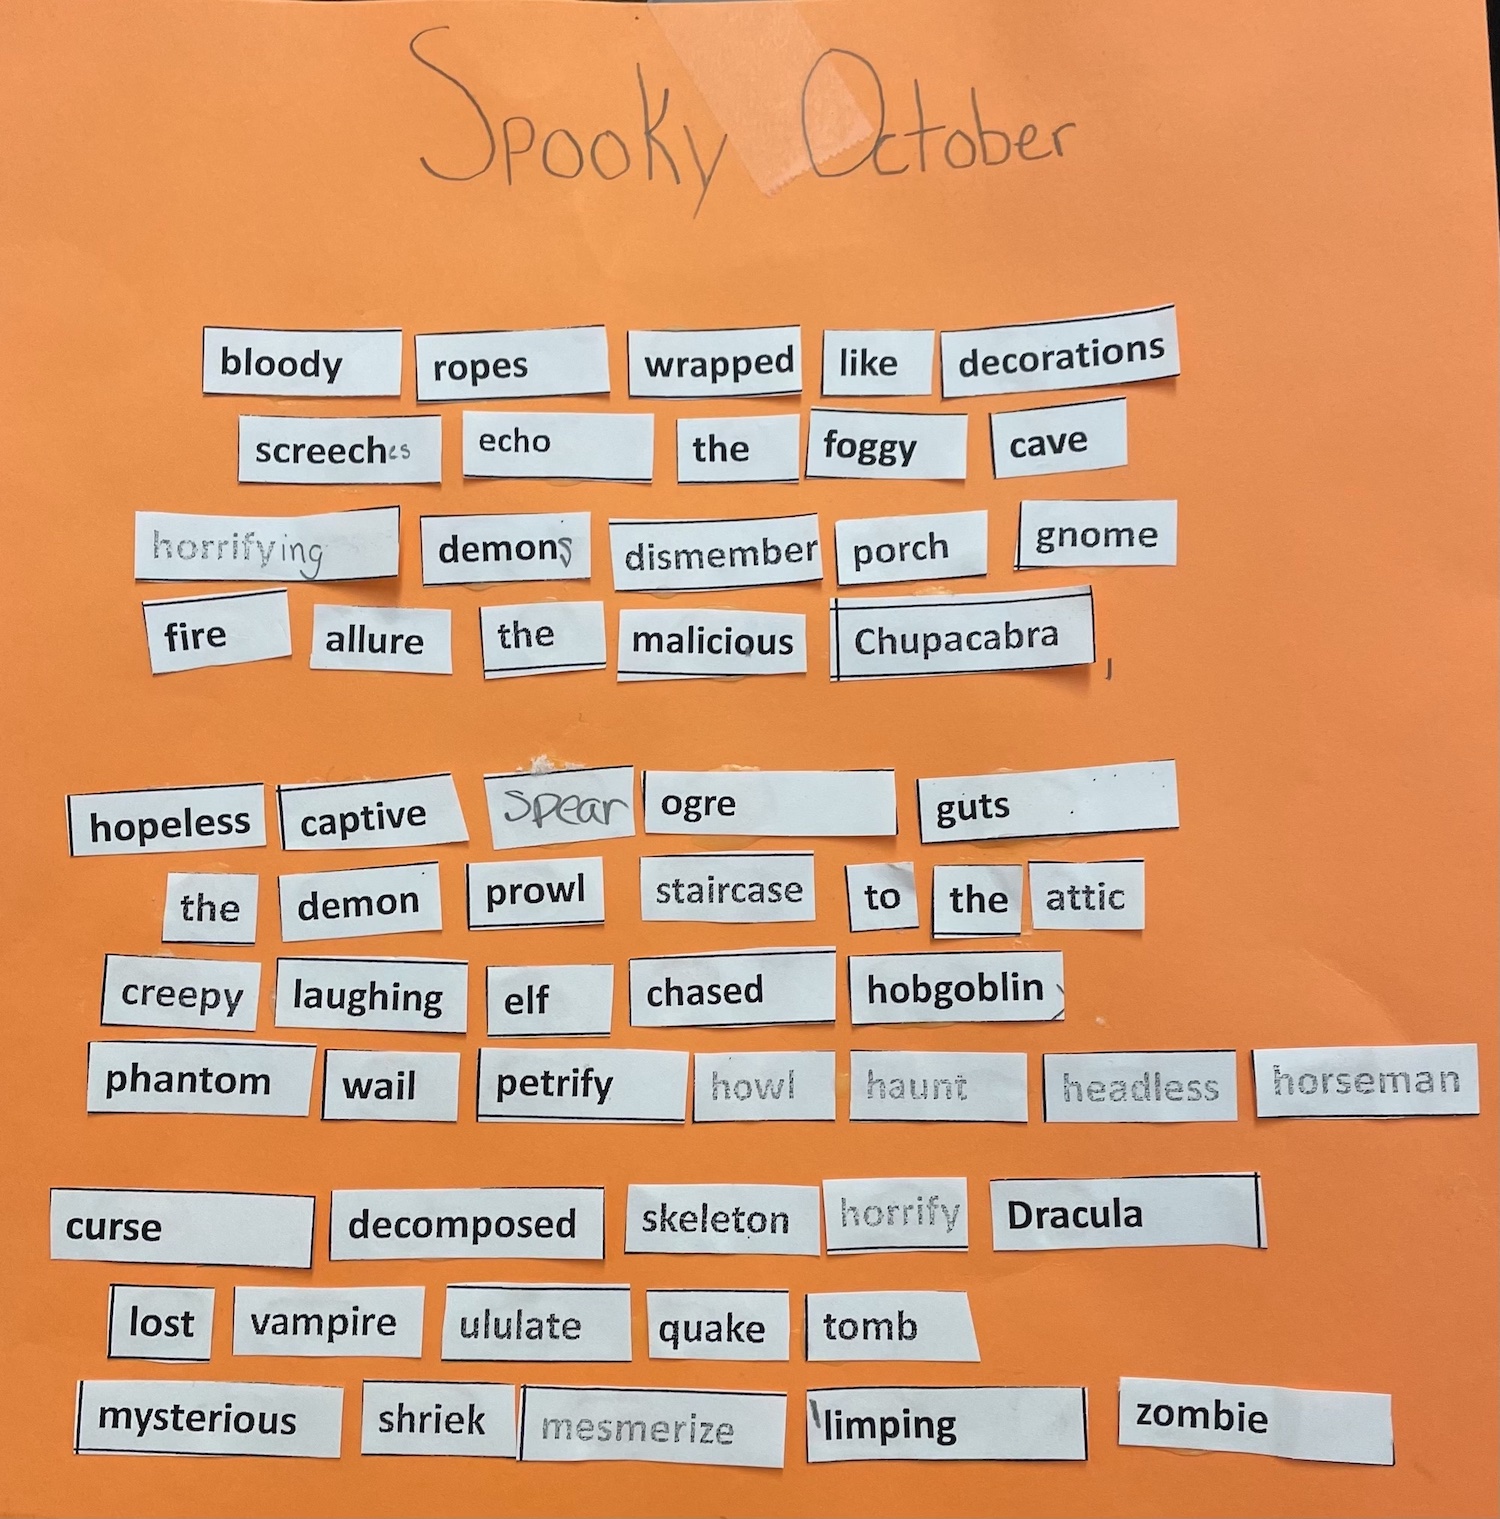 Spooky October
bloody ropes wrapped like decorations
screeches echo the foggy cave
horrifying demons dismember porch gnome
fire allure the malicious Chupacabra,
hopeless captive spear ogre guts
the demon prowl staircase to the attic
creepy laughing elf chased hobgoblin
phantom wail petrify howl haunt headless horseman
curse decomposed skeleton horrify Dracula
lost vampire ululate quake tomb
mysterious shriek mesmerize limping zombie